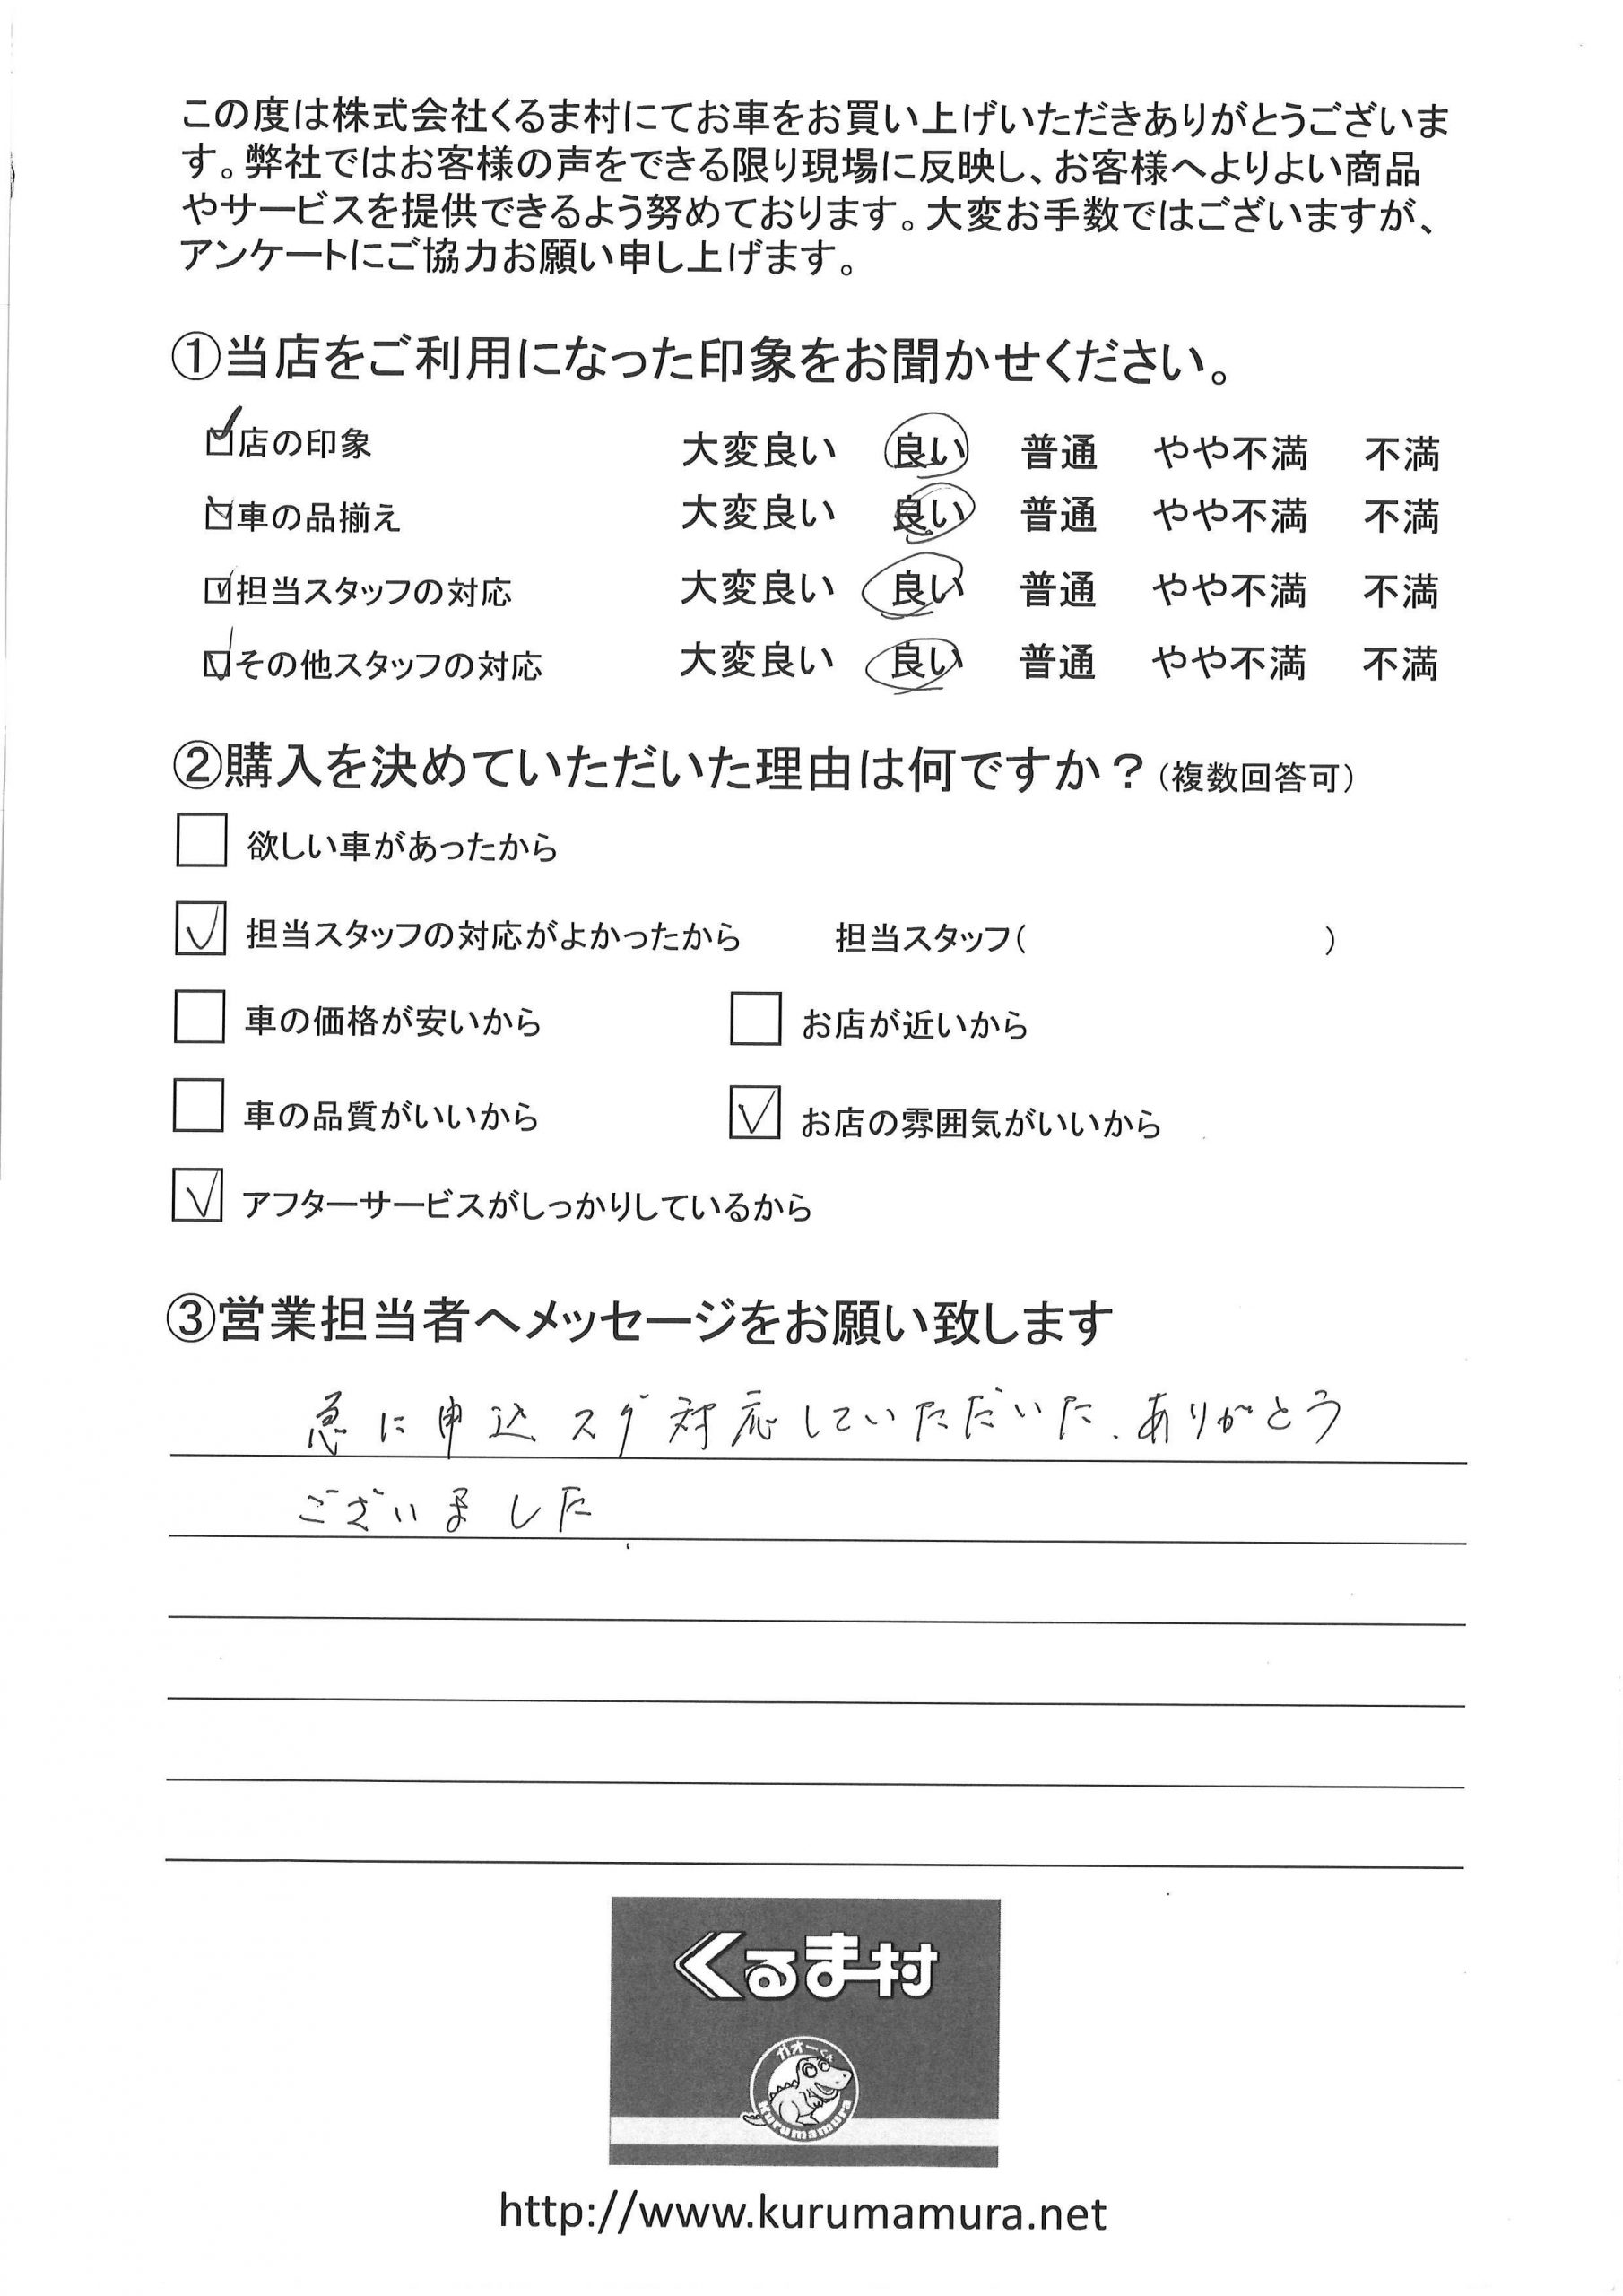 この度は株式会社くるま村にてお車をお買い上げいただきありがとうございま
す。弊社ではお客様の声をできる限り現場に反映し、お客様へよりよい商品
やサービスを提供できるよう努めております。大変お手数ではございますが、
アンケートにご協力お願い申し上げます。
①当店をご利用になった印象をお聞かせください。
☑店の印象 大変良い 良い 普通 やや不満 不満
☑車の品揃え 大変良い 良い 普通 やや不満 不満
☑担当スタッフの対応 大変良い 良い 普通 やや不満 不満
☑その他スタッフの対応 大変良い 良い 普通 やや不満 不満
②購入を決めていただいた理由は何ですか？（複数回答可）
□ 欲しい車があったから
☑ 担当スタッフの対応がよかったから 担当スタッフ（ ）
□ 車の価格が安いから □ お店が近いから
□ 車の品質がいいから ☑ お店の雰囲気がいいから
☑ アフターサービスがしっかりしているから
③営業担当者へメッセージをお願い致します
急に申込スグ対応していただいた、ありがとう
ございました
くるま村
ガオーくん
Kurumamura
http://www.kurumamura.net